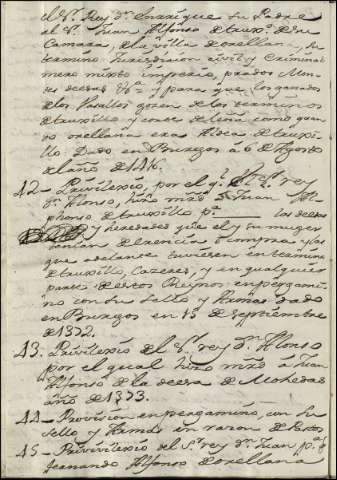 el Sr. Rey Dn. Enrrique su Padre
al Sr. Juan Alfonso de truxo. de su
Camara, de la villa de orellana, su
termino jurisdicion civil y Criminal
mero mixto imperio, prados Mon-
tes decesas &a. y para que los ganados
de los Vasallos gozen de los terminos
de truxillo y corte de leña, como quan-
do orellana era Aldea de truxi-
llo. Dado en Burgos à 6 de Agosto
del año de
42 - Privilexio, por el q. el Sr. rey
Dn. Alonso, hizo mrd. à Juan Al-
phonso de truxillo pa. las decesas
y heredades que el y su muger
tenian de erencia ò compra y las
que adelante tuviesen en termino
de truxillo, Cazeres, y en qualquier
parte destos Reynos en pergami-
no con su sello y harmas. dado
en Burgos en 15 de septiembre
de 1372.
43. Privilexio del Sr. rey Dn. Alonso
por el qual hizo mrd. à Juan
Alfonso de la decesa de Mohedas
año de 1373.
44 - Provision en pergamino, con su
sello y harmas en razon de
45 - Privivilexio del Sr. rey Dn. Juan pa. q.
Fernando Alfonso de orellana